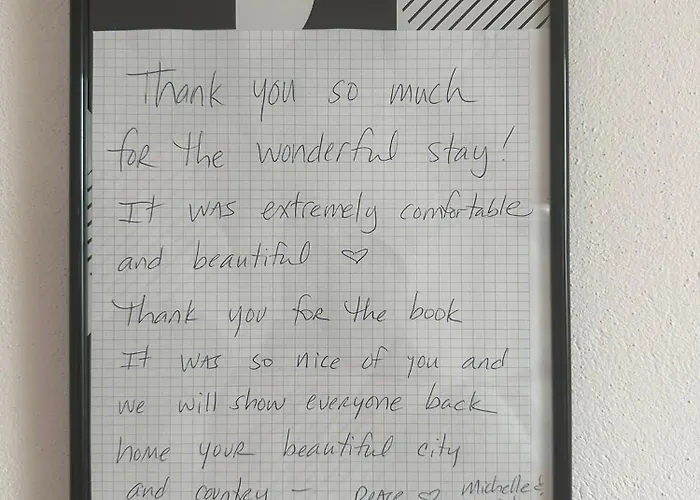 Thank you so much
for the wonderful stay!
It was extremely comfortable
and beautiful ♡
Thank you for the book
It was so nice of you and
we will show everyone back
home your beautiful city
and country – Peace ♡ Michelle &